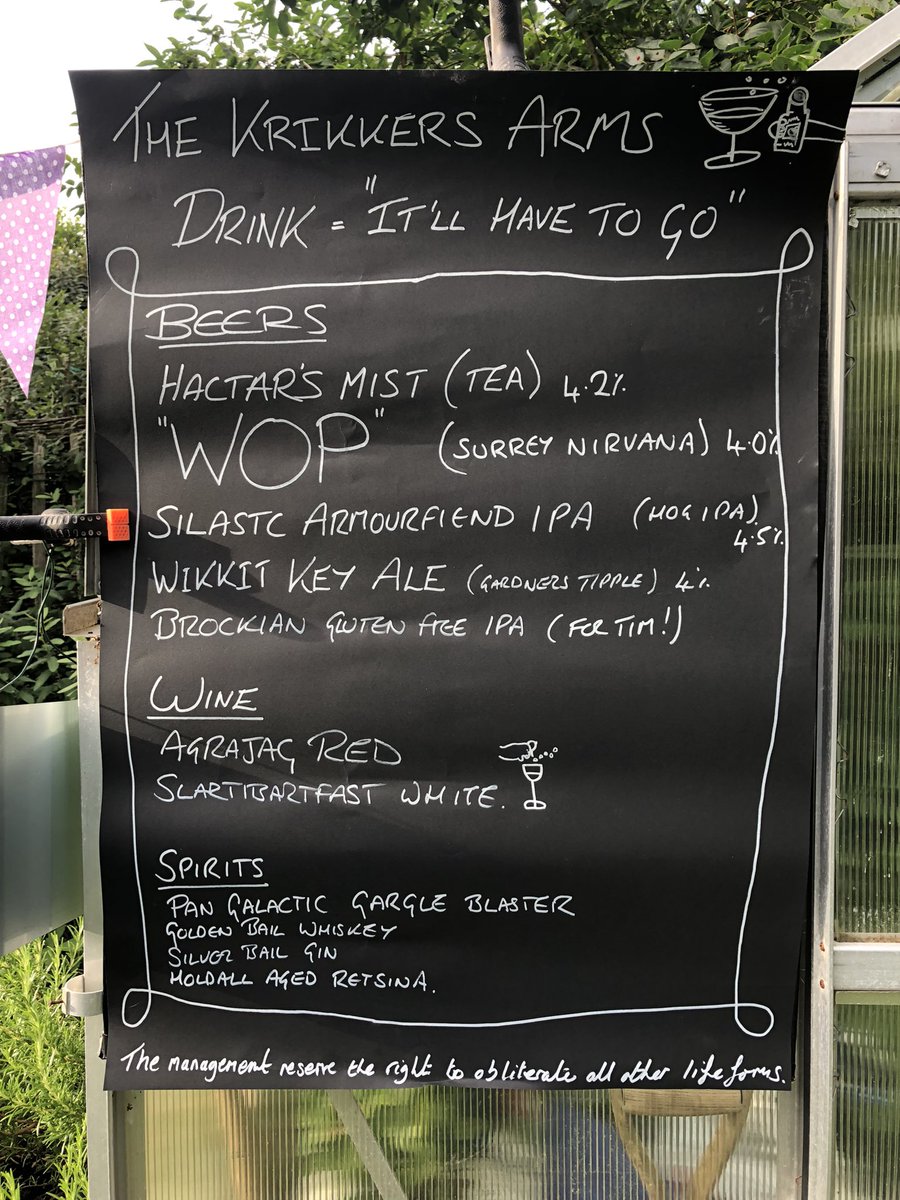 THE KRIKKERS ARMS
DRINK = "IT'LL HAVE TO GO"
BEERS
HACTAR'S MIST (TEA) 4.2%
"WOP" (SURREY NIRVANA) 4.0%
SILASTC ARMOURFIEND IPA (HOG IPA) 4.5%
WIKKIT KEY ALE (GARDNERS TIPPLE) 4%
BROCKIAN GLUTEN FREE IPA (FOR TIM!)
WINE
AGRAJAG RED
SLARTIBARTFAST WHITE.
SPIRITS
PAN GALACTIC GARGLE BLASTER
GOLDEN BAIL WHISKEY
SILVER BAIL GIN
HOLDALL AGED RETSINA.
The management reserve the right to obliterate all other life forms.